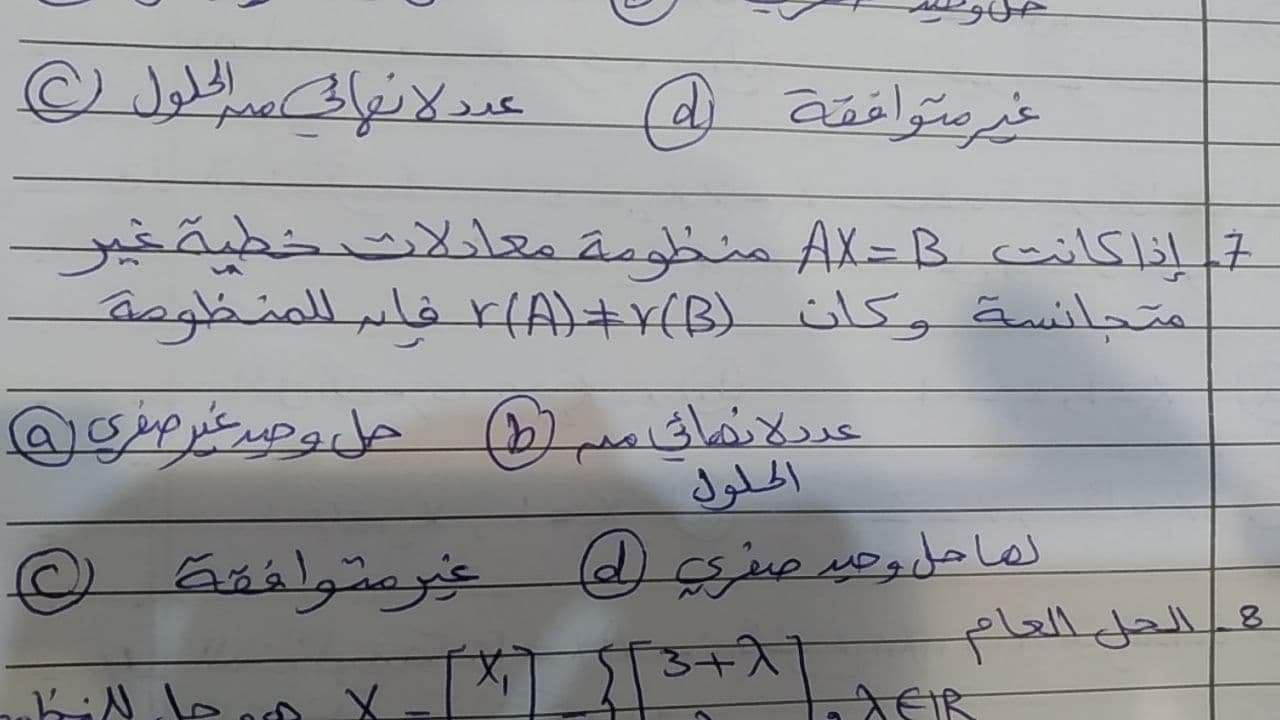 حل وحيد
عدد لا نهائي من الحلول (c) غير متوافقة (d)
7. إذا كانت AX=B منظومة معادلات خطية غير
متجانسة وكان r(A)≠r(B) فإن للمنظومة
(a) حل وحيد غير صفري (b) عدد لا نهائي من
الحلول
(c) غير متوافقة (d) لها حل وحيد صفري
8. الحل العام
X = [x₁] = {[3+λ] , λ∈ℝ هو حل